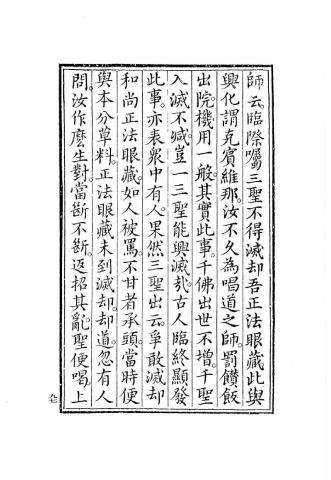 師云。臨際囑三聖不得滅却吾正法眼藏。此與
興化謂克賓維那。汝不久為唱道之師。罰饡飯
出院。機用一般。其實此事。千佛出世不增。千聖
入滅不減。豈一三聖能興滅哉。古人臨終顯發
此事。亦表衆中有人。果然三聖出云。爭敢滅却
和尚正法眼藏。如人被罵不甘者承頭。當時便
與本分草料。正法眼藏未到滅却。却道。忽有人
問。汝作麽生對。當斷不斷。返招其亂。聖便喝。上